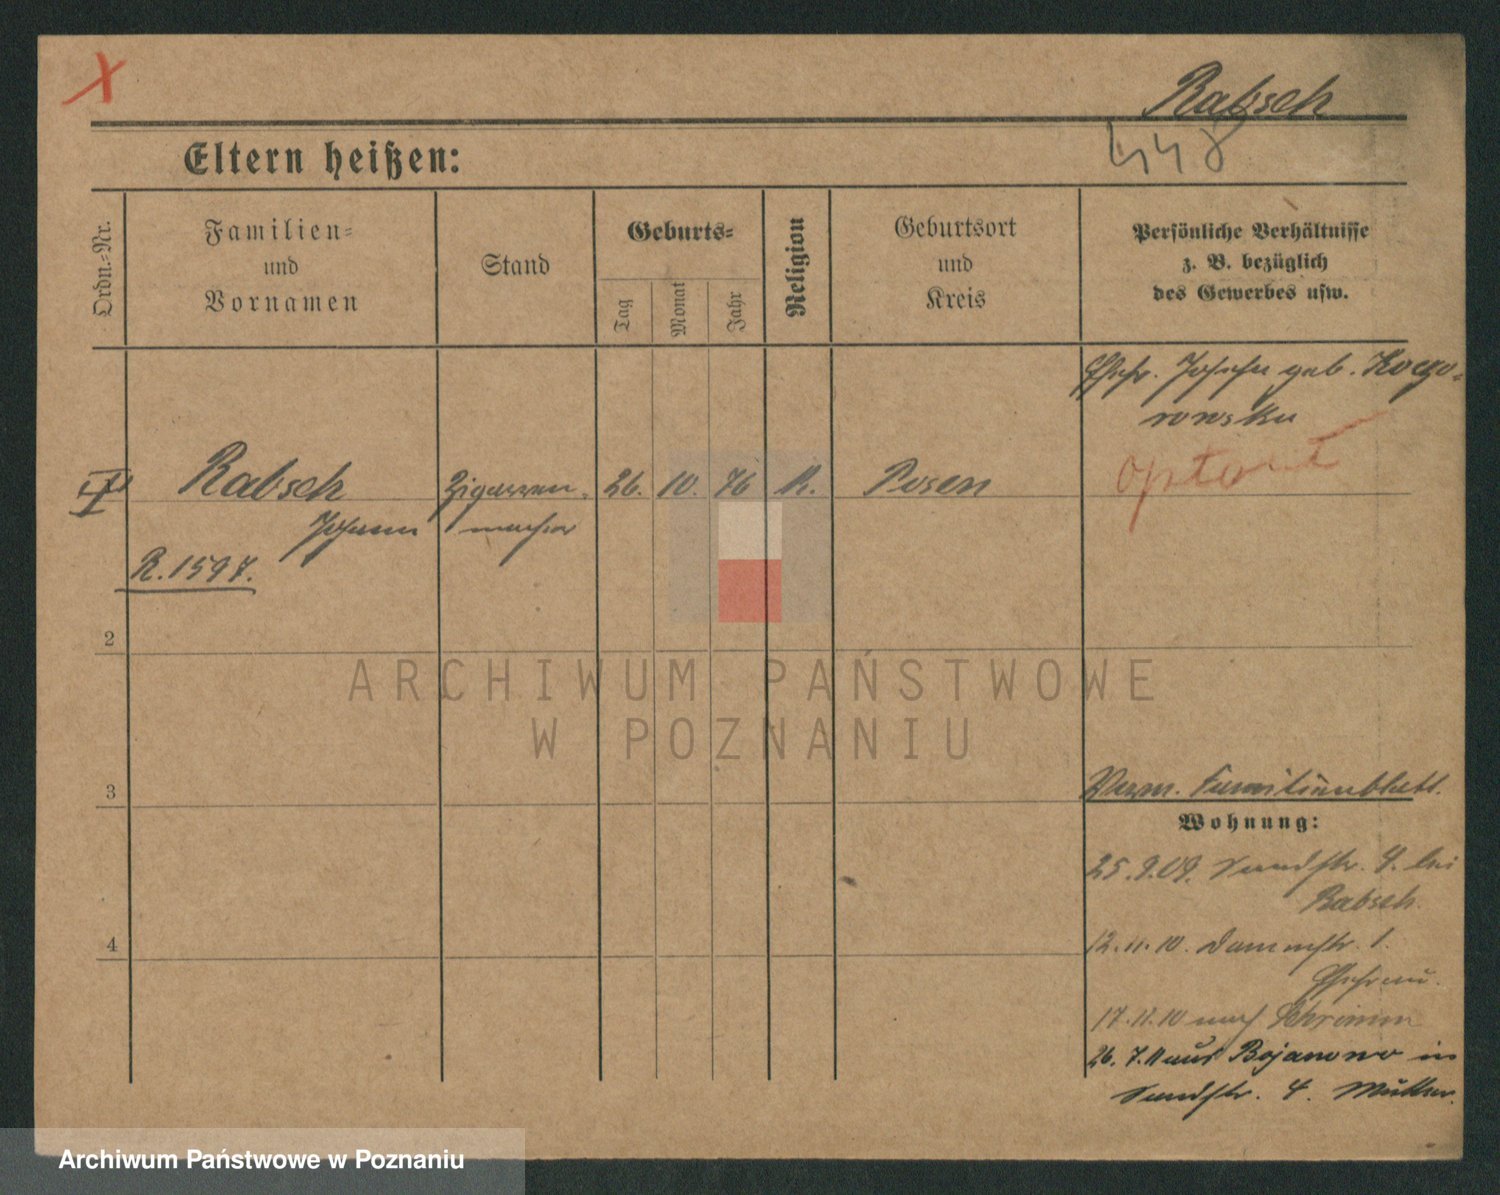 X
Rabsch
448
Eltern heißen:
Ordn.-Nr.
Familien-
und
Vornamen
Stand
Geburts-
Tag
Monat
Jahr
Religion
Geburtsort
und
Kreis
Persönliche Verhältnisse
z. B. bezüglich
des Gewerbes usw.
Ehefr. geb.
rowska
optiert
Rabsch Zigarren- 26. 10. 76 K. Posen
Johann macher
R. 1597.
2
ARCHIWUM PAŃSTWOWE
W POZNANIU
3
Verm. Familienblatt.
Wohnung:
25.9.09. Sandstr. 4. bei
Rabsch.
4
12.11.10. Dammstr. 1.
Ehefrau.
17.11.10 nach Schrimm
26.7.11 aus Bojanowo in
Sandstr. 4. Mutter.
Archiwum Państwowe w Poznaniu